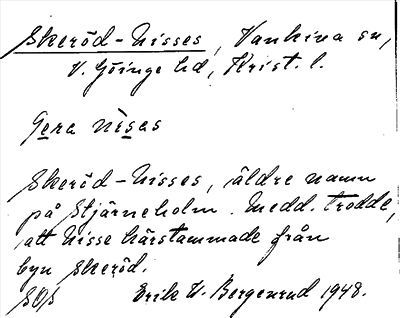 Skeröd-Nisses, Vankiva sn,
V. Göinge hd, Krist. l.
Skeröd-Nisses, äldre namn
på Stjärneholm. Medd. trodde,
att Nisse härstammade från
byn Skeröd.
Erik W. Bergenrud 1948.